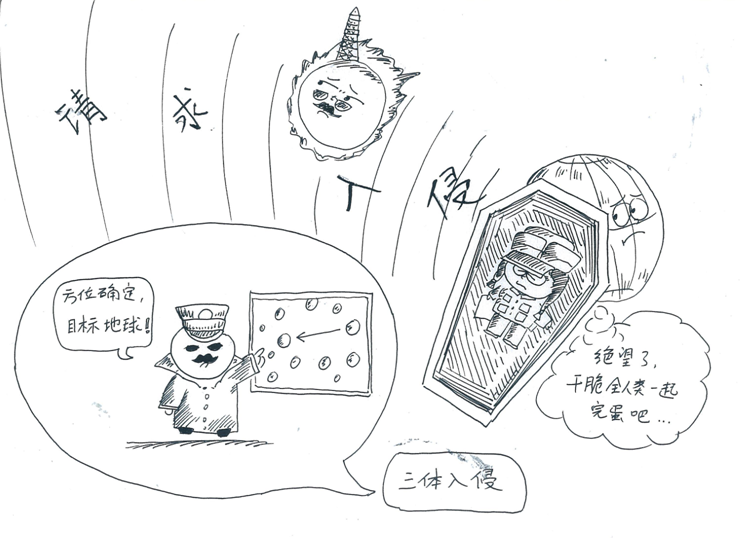 请求
入侵
方位确定，
目标地球！
绝望了，
干脆全人类一起
完蛋吧...
三体入侵